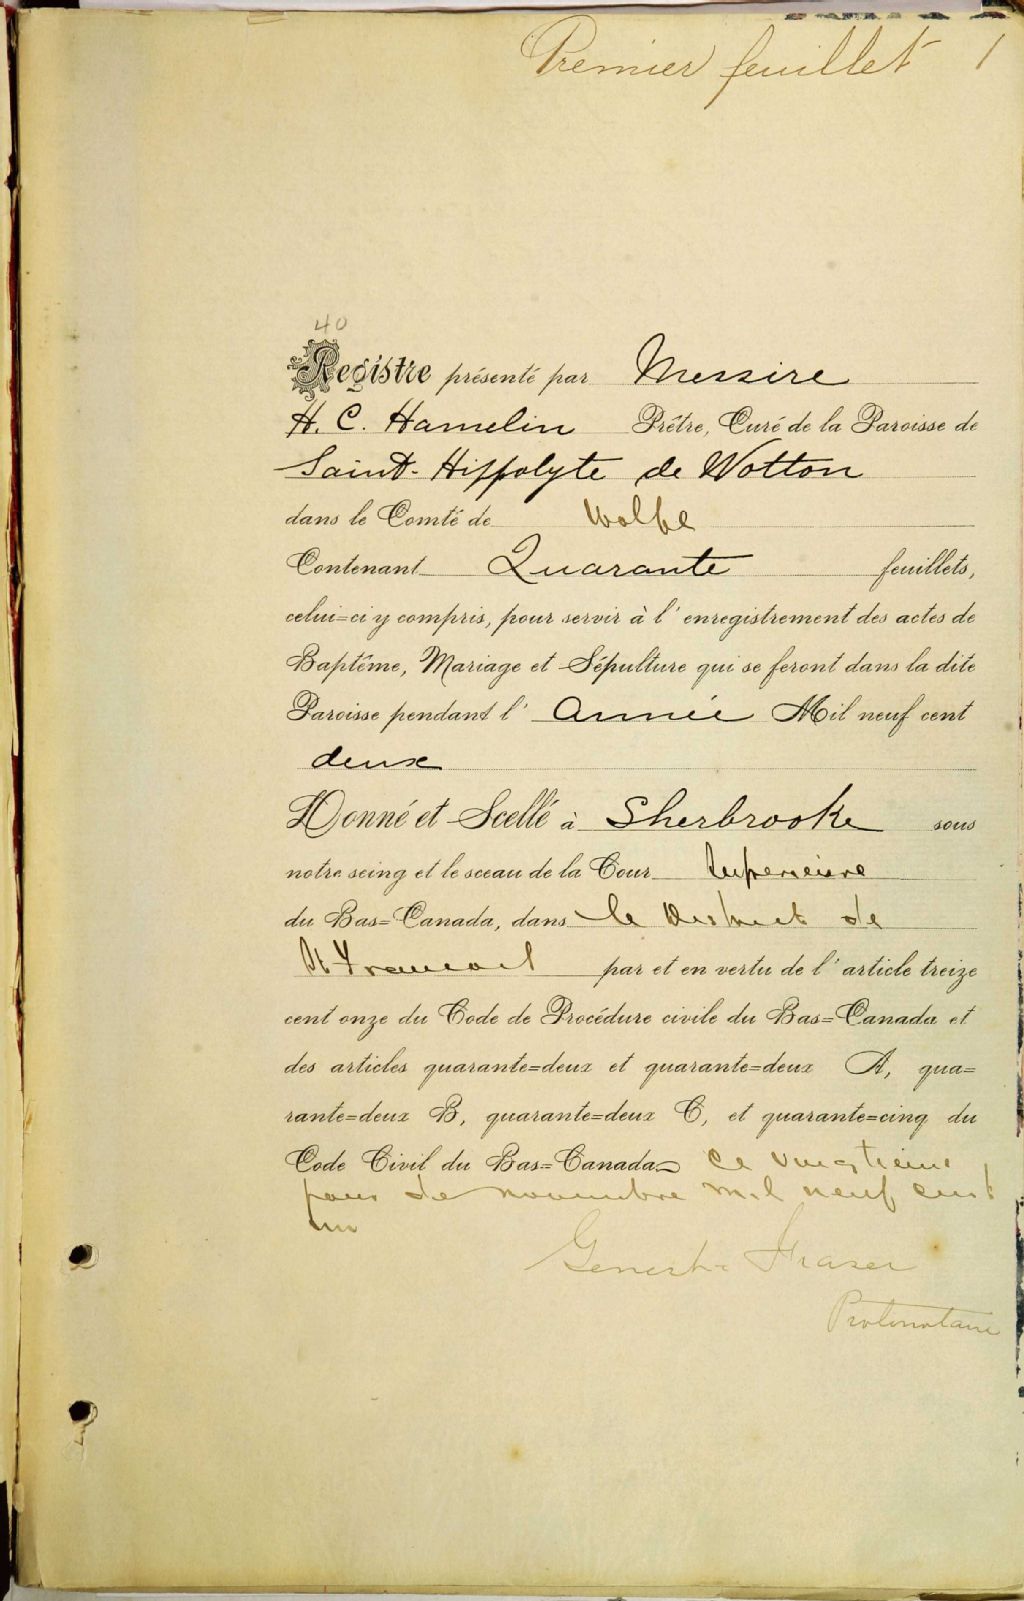 Premier feuillet 1
40
Registre présenté par Messire
H. C. Hamelin Prêtre, Curé de la Paroisse de
Saint-Hippolyte de Wotton
dans le Comté de Wolfe
Contenant Quarante feuillets,
celui=ci y compris, pour servir à l'enregistrement des actes de
Baptême, Mariage et Sépulture qui se feront dans la dite
Paroisse pendant l'année Mil neuf cent
deux
Donné et Scellé à Sherbrooke sous
notre seing et le sceau de la Cour Superieure
du Bas=Canada, dans le District de
St Francois par et en vertu de l'article treize
cent onze du Code de Procédure civile du Bas=Canada et
des articles quarante=deux et quarante=deux A, qua=
rante=deux B, quarante=deux C, et quarante=cinq du
Code Civil du Bas=Canada ce vingtieme
jour de novembre mil neuf cent
un
Genest & Fraser
Protonotaire